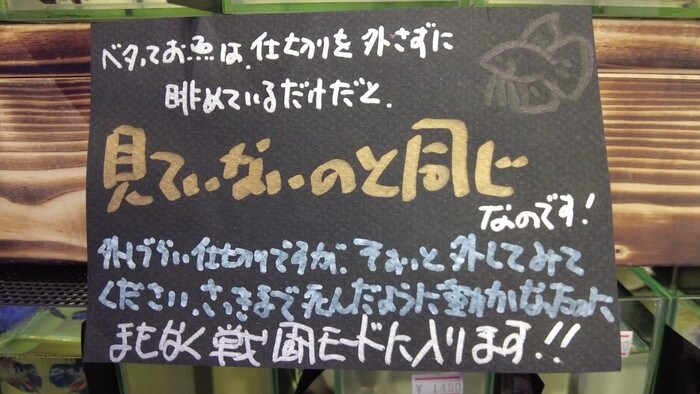 ベタってお魚は、仕切りを外さずに
眺めているだけだと、
見ていないのと同じ
なのです!
外しづらい仕切りですが、そぉ〜っと外してみて
ください。さっきまで死んだように動かなかったのに、
まもなく戦闘モードに入ります!!
¥1480